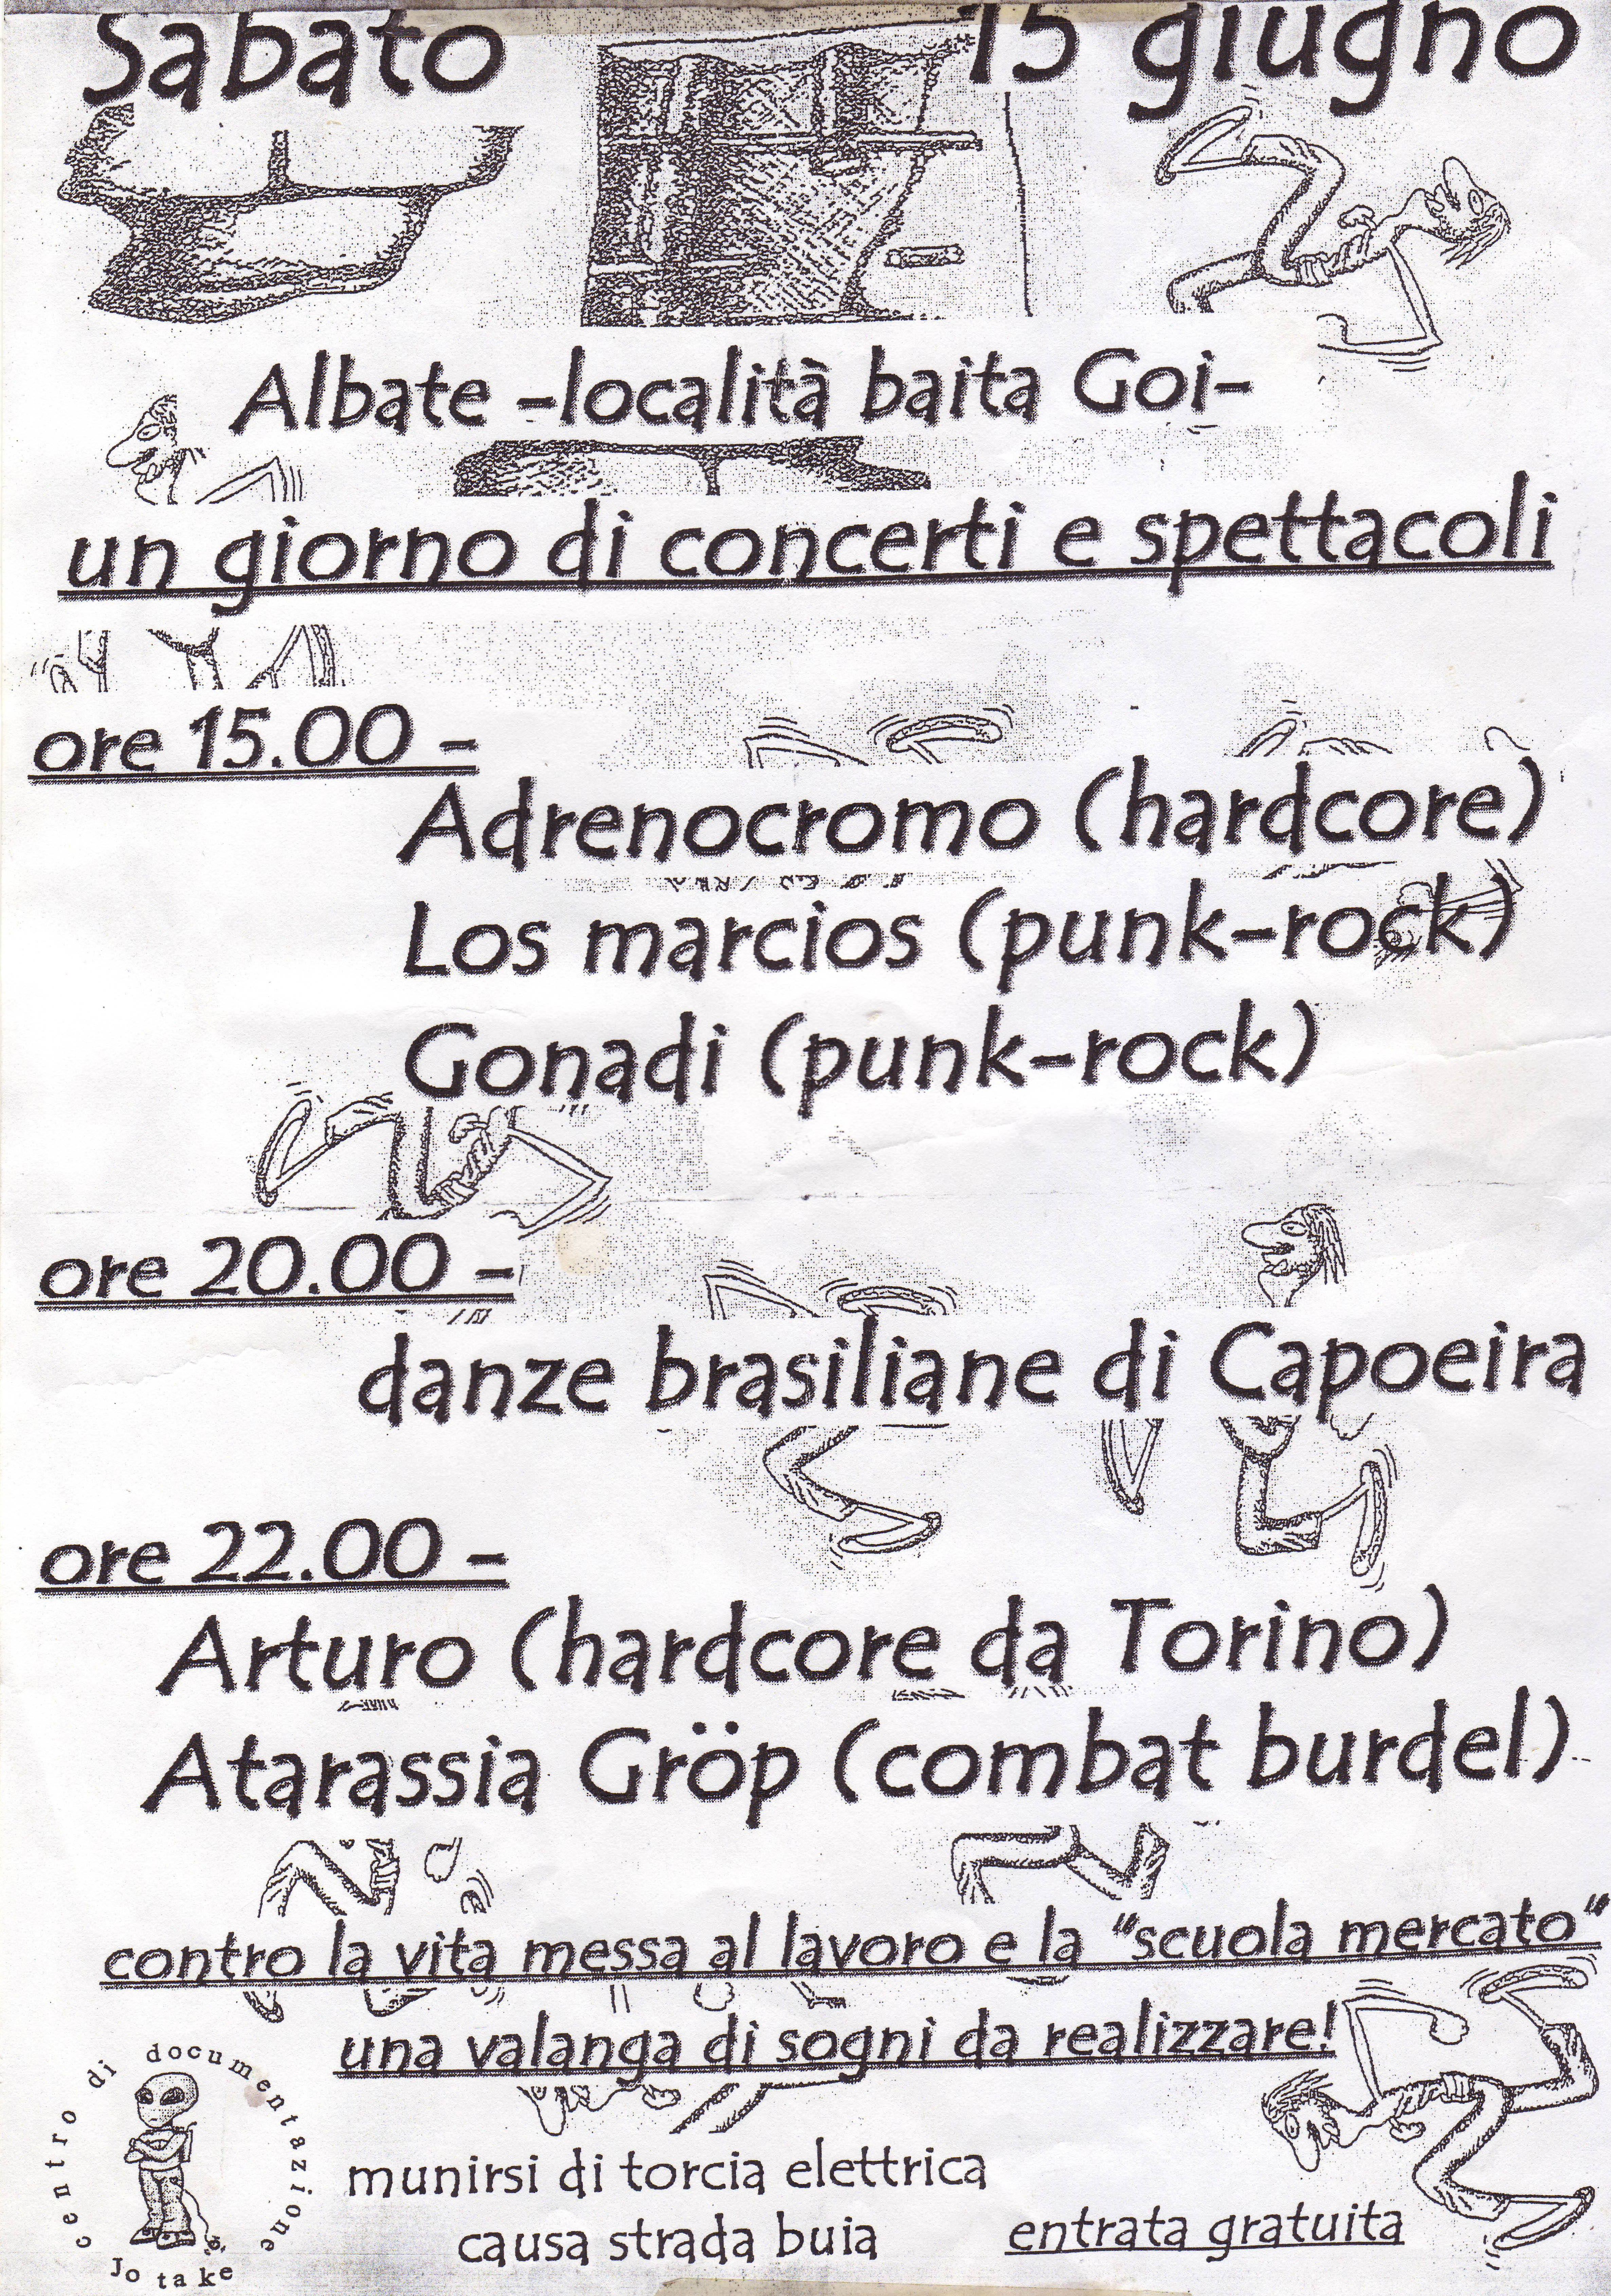 Sabato 15 giugno
Albate -località baita Goi-
un giorno di concerti e spettacoli
ore 15.00 -
Adrenocromo (hardcore)
Los marcios (punk-rock)
Gonadi (punk-rock)
ore 20.00 -
danze brasiliane di Capoeira
ore 22.00 -
Arturo (hardcore da Torino)
Atarassia Gröp (combat burdel)
contro la vita messa al lavoro e la “scuola mercato”
una valanga di sogni da realizzare!
centro di documentazione
Jo take
munirsi di torcia elettrica
causa strada buia
entrata gratuita